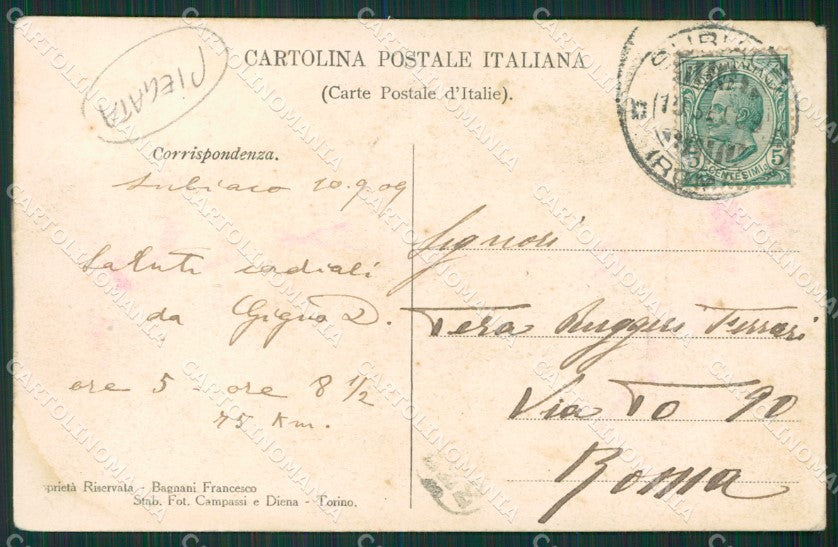 PIEGATA
CARTOLINA POSTALE ITALIANA
(Carte Postale d'Italie).
Corrispondenza.
Subiaco 10.9.09
Saluti cordiali
da Gigino D.
ore 5 - ore 8 1/2
75 Km.
Signori
Vera Ruggeri Ferrari
Via To 90
Roma
5 5
CENTESIMI
prietà Riservata - Bagnani Francesco
Stab. Fot. Campassi e Diena - Torino.
CARTOLINOMANIA